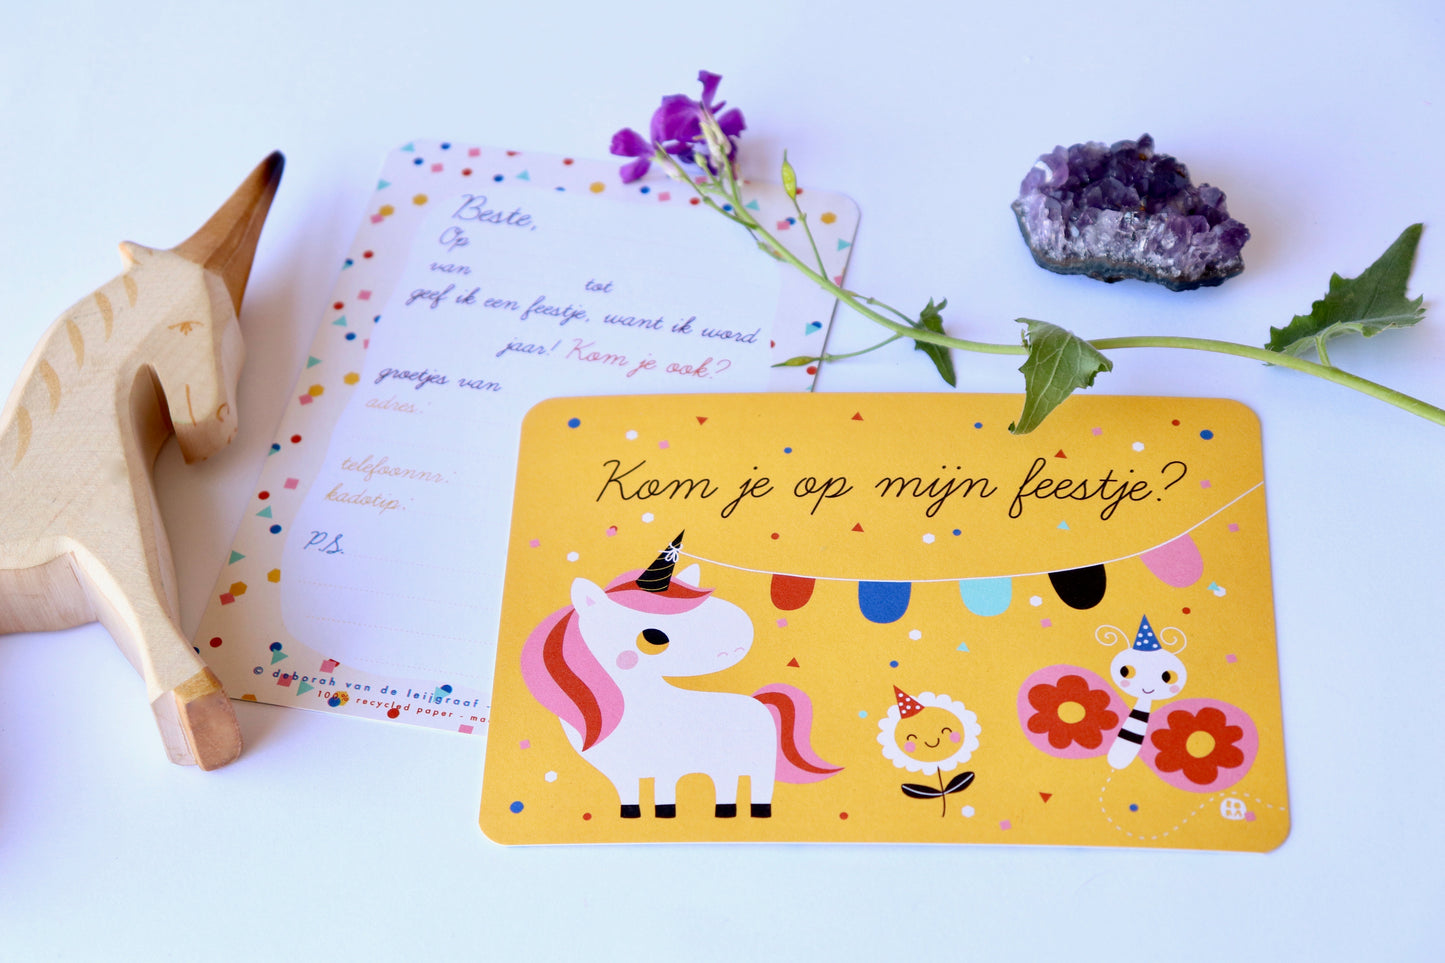 Beste,
Op
van tot
geef ik een feestje, want ik word
jaar! Kom je ook?
groetjes van
adres:
telefoonnr:
kadotip:
P.S.
© deborah van de leijgraaf -
100% recycled paper - ma
Kom je op mijn feestje?